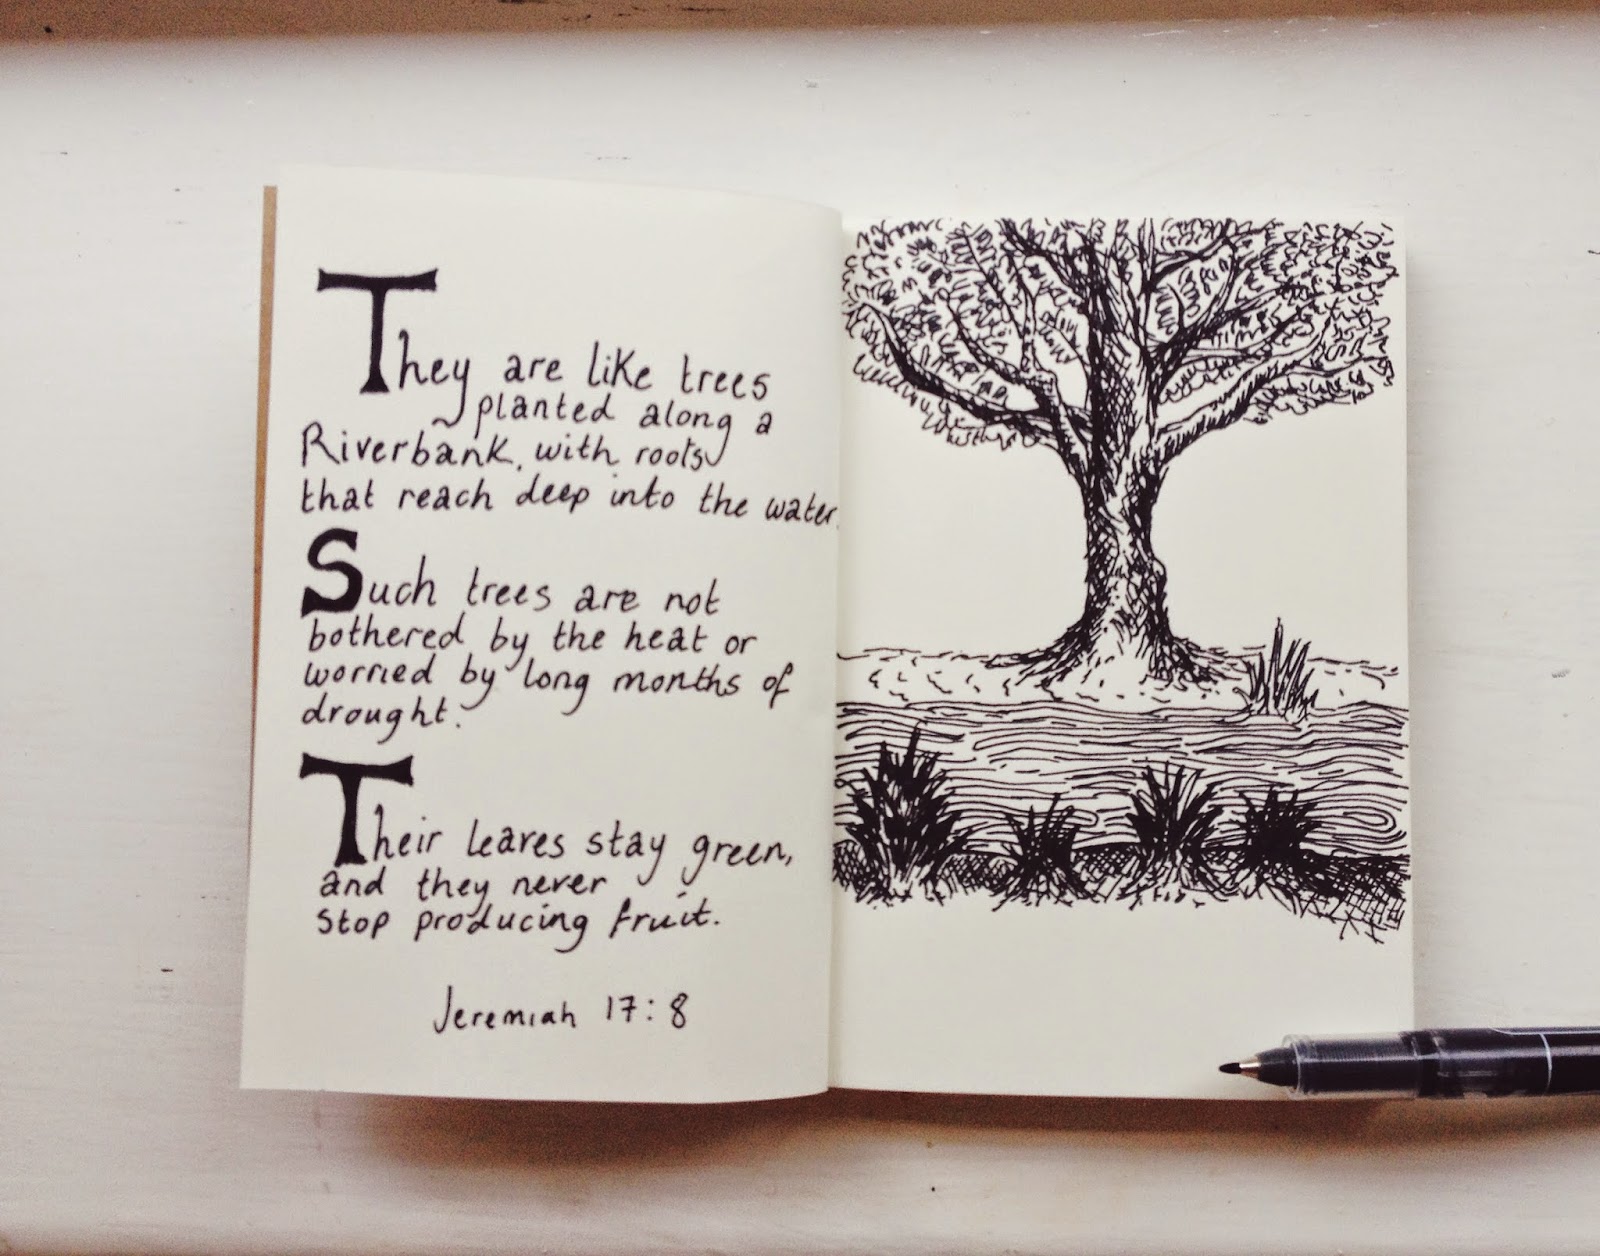 They are like trees
planted along a
Riverbank, with roots
that reach deep into the water.
Such trees are not
bothered by the heat or
worried by long months of
drought.
Their leaves stay green,
and they never
stop producing fruit.
Jeremiah 17:8